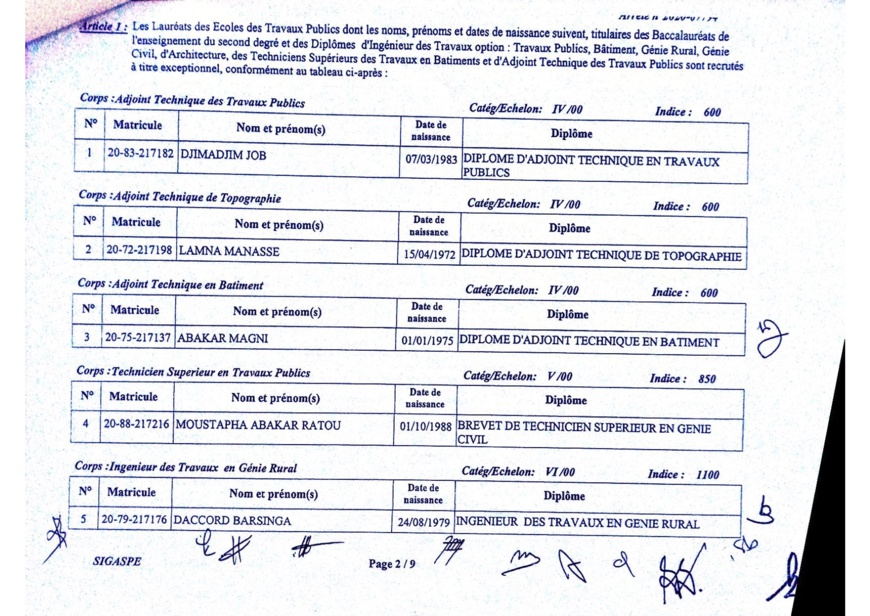 Article 1 : Les Lauréats des Ecoles des Travaux Publics dont les noms, prénoms et dates de naissance suivent, titulaires des Baccalauréats de
l'enseignement du second degré et des Diplômes d'Ingénieur des Travaux option : Travaux Publics, Bâtiment, Génie Rural, Génie
Civil, d'Architecture, des Techniciens Supérieurs des Travaux en Batiments et d'Adjoint Technique des Travaux Publics sont recrutés
à titre exceptionnel, conformément au tableau ci-après :
Corps :Adjoint Technique des Travaux Publics Catég/Echelon: IV/00 Indice : 600
N° Matricule Nom et prénom(s) Date de naissance Diplôme
1 20-83-217182 DJIMADJIM JOB 07/03/1983 DIPLOME D'ADJOINT TECHNIQUE EN TRAVAUX
PUBLICS
Corps :Adjoint Technique de Topographie Catég/Echelon: IV/00 Indice : 600
N° Matricule Nom et prénom(s) Date de naissance Diplôme
2 20-72-217198 LAMNA MANASSE 15/04/1972 DIPLOME D'ADJOINT TECHNIQUE DE TOPOGRAPHIE
Corps :Adjoint Technique en Batiment Catég/Echelon: IV/00 Indice : 600
N° Matricule Nom et prénom(s) Date de naissance Diplôme
3 20-75-217137 ABAKAR MAGNI 01/01/1975 DIPLOME D'ADJOINT TECHNIQUE EN BATIMENT
Corps :Technicien Superieur en Travaux Publics Catég/Echelon: V/00 Indice : 850
N° Matricule Nom et prénom(s) Date de naissance Diplôme
4 20-88-217216 MOUSTAPHA ABAKAR RATOU 01/10/1988 BREVET DE TECHNICIEN SUPERIEUR EN GENIE
CIVIL
Corps :Ingenieur des Travaux en Génie Rural Catég/Echelon: VI/00 Indice : 1100
N° Matricule Nom et prénom(s) Date de naissance Diplôme
5 20-79-217176 DACCORD BARSINGA 24/08/1979 INGENIEUR DES TRAVAUX EN GENIE RURAL
SIGASPE Page 2 / 9